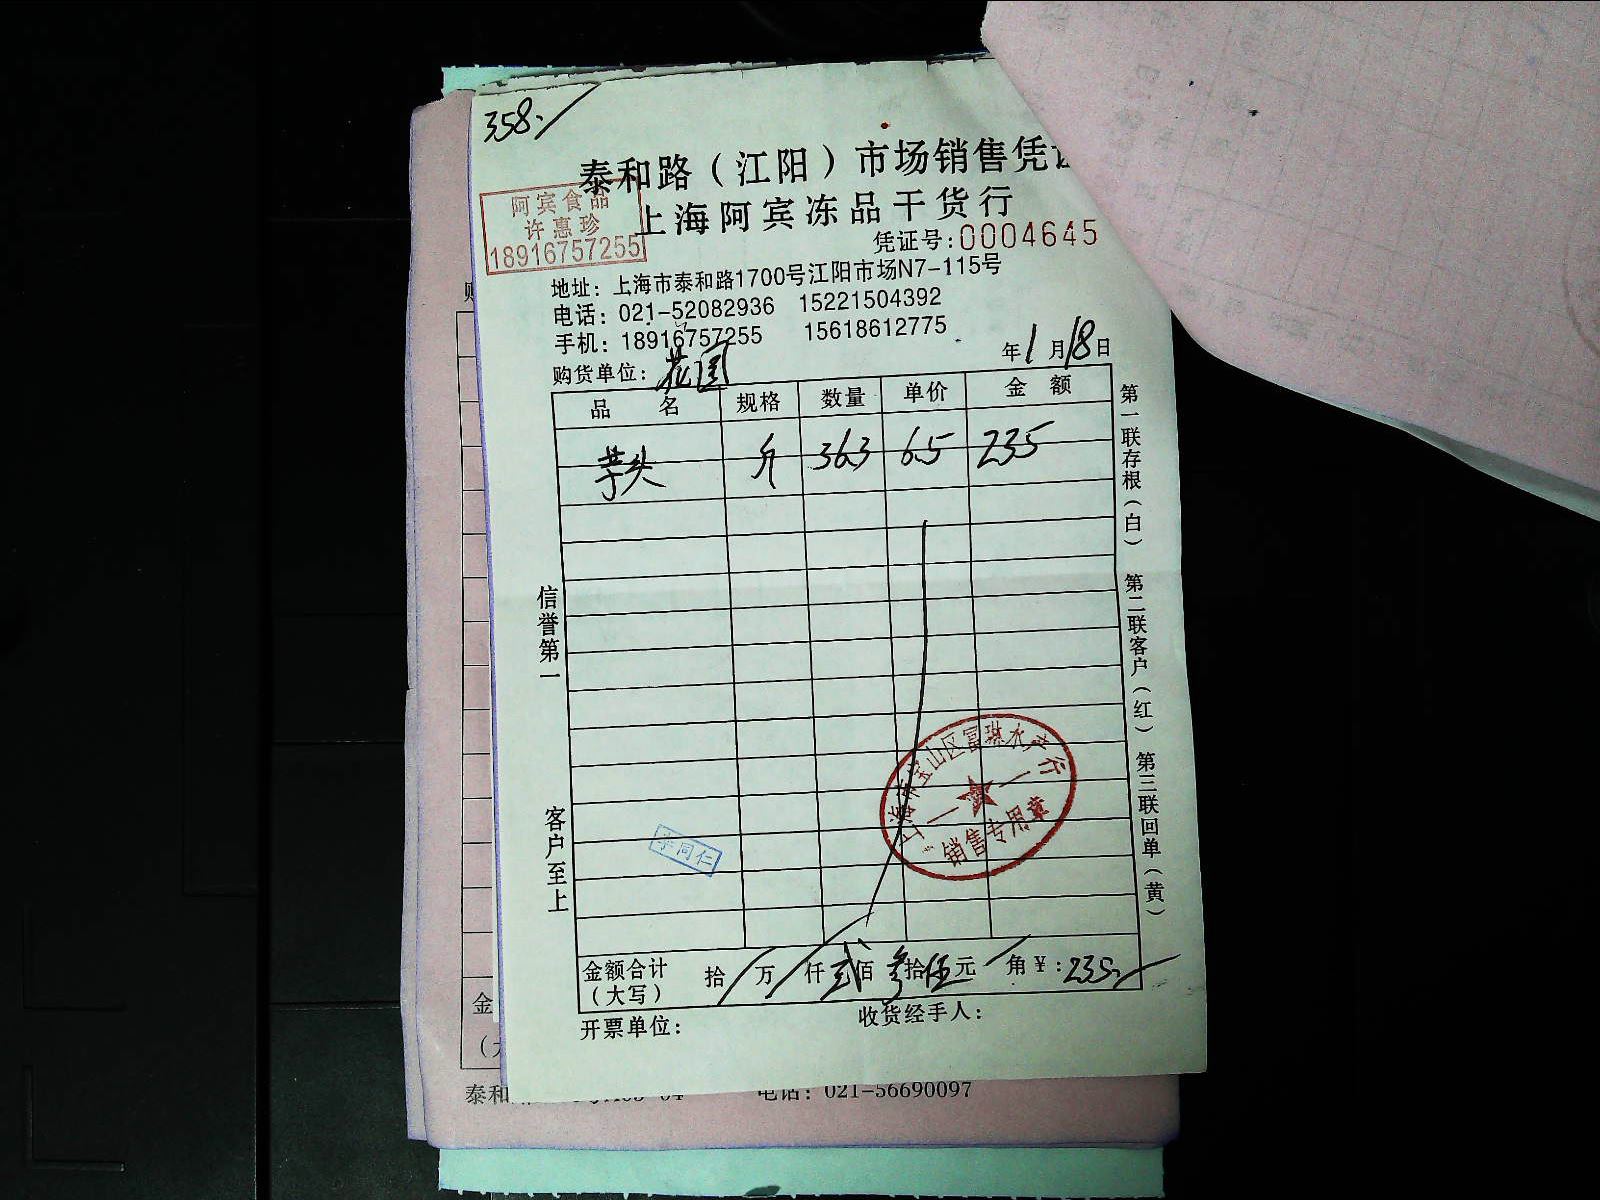 358.
泰和路（江阳）市场销售凭
上海阿宾冻品干货行
阿宾食品
许惠珍
18916757255
凭证号:0004645
地址：上海市泰和路1700号江阳市场N7-115号
电话：021-52082936 15221504392
手机：18916757255 15618612775
购货单位：花园 年1月18日
品名 规格 数量 单价 金额
芋头 斤 36.3 6.5 235
第一联存根（白） 第二联客户（红） 第三联回单（黄）
信誉第一 客户至上
上海市宝山区富琪水产行
销售专用章
李同仁
金额合计（大写） 拾 万 仟 贰佰 叁拾 伍元 角 ¥:235.
开票单位： 收货经手人：
金
泰和 电话：021-56690097